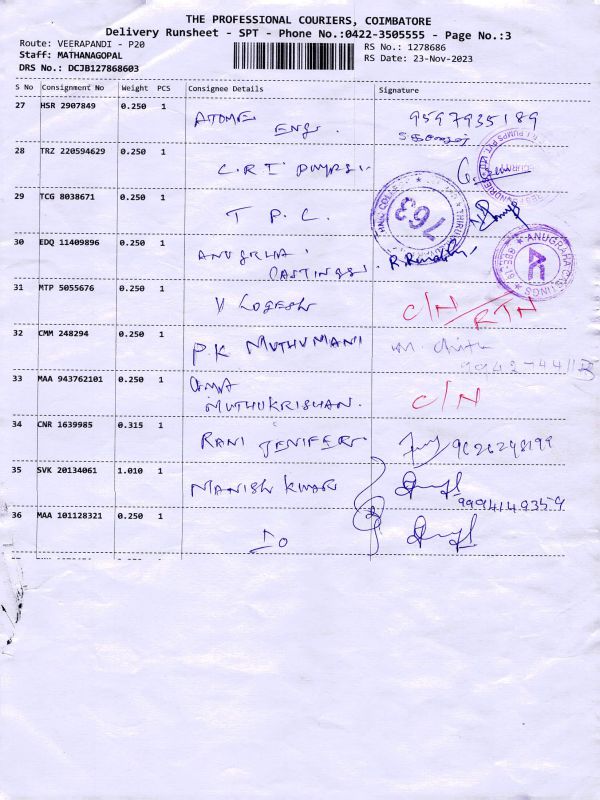 THE PROFESSIONAL COURIERS, COIMBATORE
Delivery Runsheet - SPT - Phone No.:0422-3505555 - Page No.:3
Route: VEERAPANDI - P20 RS No.: 1278686
Staff: MATHANAGOPAL RS Date: 23-Nov-2023
DRS No.: DCJB127868603
S No Consignment No Weight PCS Consignee Details Signature
27 HSR 2907849 0.250 1 ATOME ENG. 9597935189
28 TRZ 220594629 0.250 1 C.R.I PUMPS
29 TCG 8038671 0.250 1 T P C. 763
30 EDQ 11409896 0.250 1 ANUGRHA CASTINGS. ANUGRAHA CASTINGS
31 MTP 5055676 0.250 1 V LOGESH C/N RTN
32 CMM 248294 0.250 1 P.K MUTHUMANI
33 MAA 943762101 0.250 1 MUTHUKRISHAN. C/N
34 CNR 1639985 0.315 1 RANI JENIFER 9626248199
35 SVK 20134061 1.010 1 MANISH KUMAR 9994149359
36 MAA 101128321 0.250 1 Do